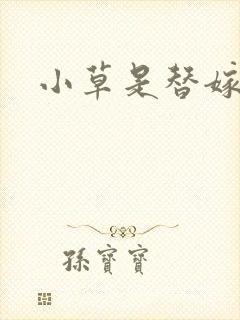 小草是替嫁
孫寶寶